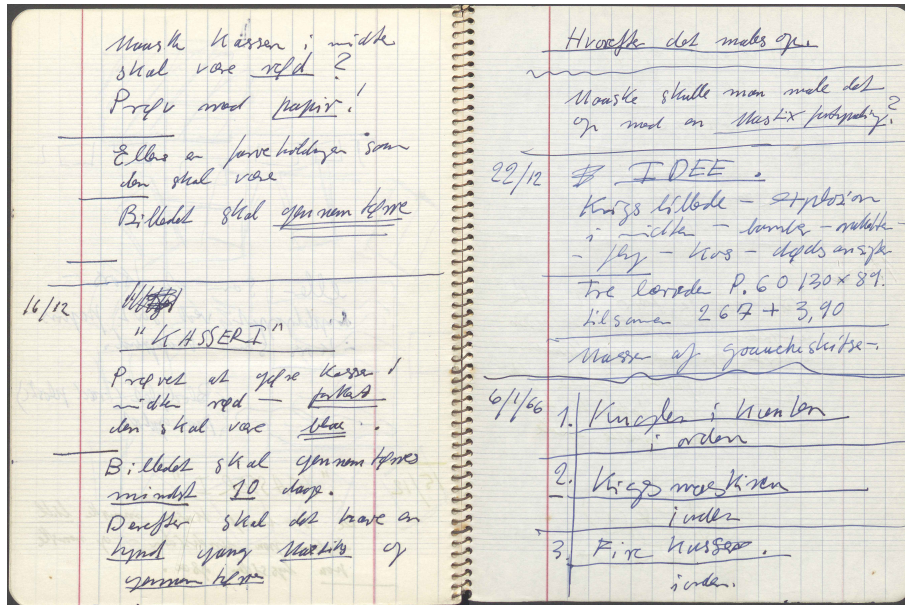 Maaske Kassen i midten
skal være rød ?
Prøv med papir !
Ellers en farveholdning som
den skal være
Billedet skal gennemtørre
16/12
"KASSERI"
Prøvet at gøre Kassen i
midten rød — forkert
den skal være blaa
Billedet skal gennemtørres
mindst 10 dage.
Derefter skal det have en
tynd gang Mastix og
gennemtørre
Hvorefter det males op.
Maaske skulle man male det
op med en Mastix ?
22/12 IDEE .
Krigsbillede – explosion
i midten – bomber – raketter –
– fly – – dødsangst
Tre lærreder P. 60 130 x 89.
tilsammen 267 + 3,90
Masser af gouacheskitser.
6/1/66
1. Knaglen i Kanten
i orden
2. Krigsmaskinen
i orden
3. Fire Kasser.
i orden.